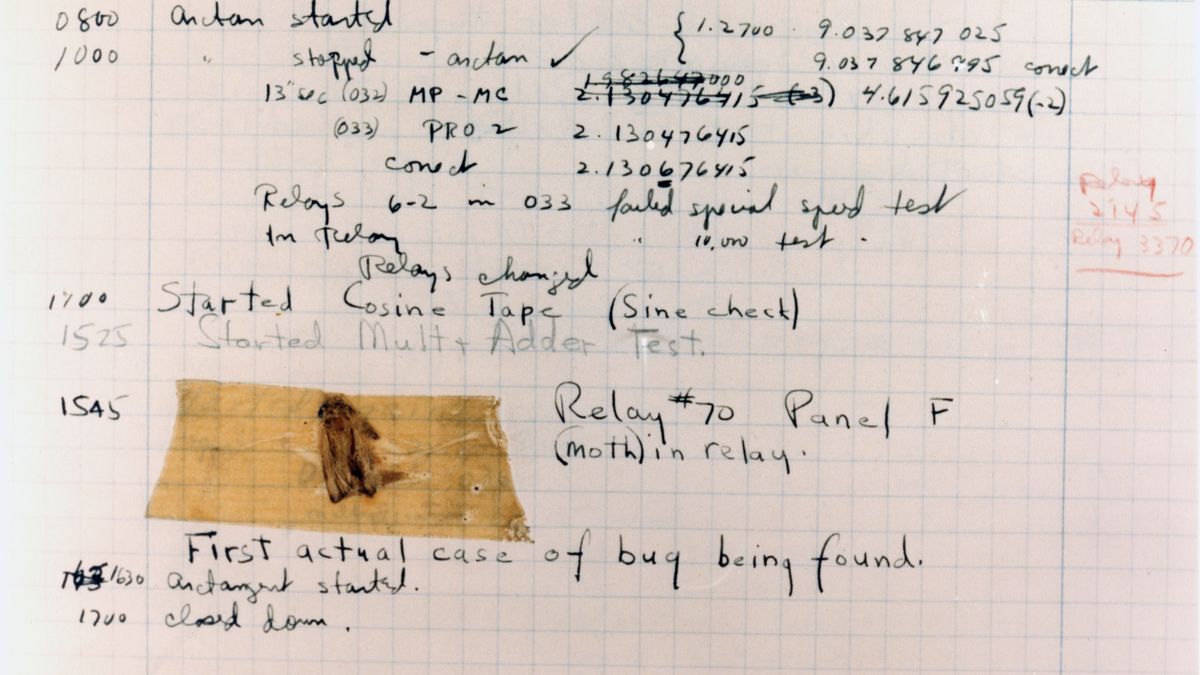 0800 arctan started { 1.2700 9.037 847 025
1000 " stopped - arctan ✓ 9.037 846 795 conect
13" sec (032) MP - MC 1.982647000
2.130476415 (-3) 4.615925059(-2)
(033) PRO 2 2.130476415
conect 2.130676415
Relays 6-2 in 033 failed special speed test
In Relay " 10,000 test.
Relays changed
Relay
2145
Relay 3370
1700 Started Cosine Tape (Sine check)
1525 Started Mult + Adder Test.
1545 Relay #70 Panel F
(moth) in relay.
First actual case of bug being found.
1630 arctangent started.
1700 closed down.